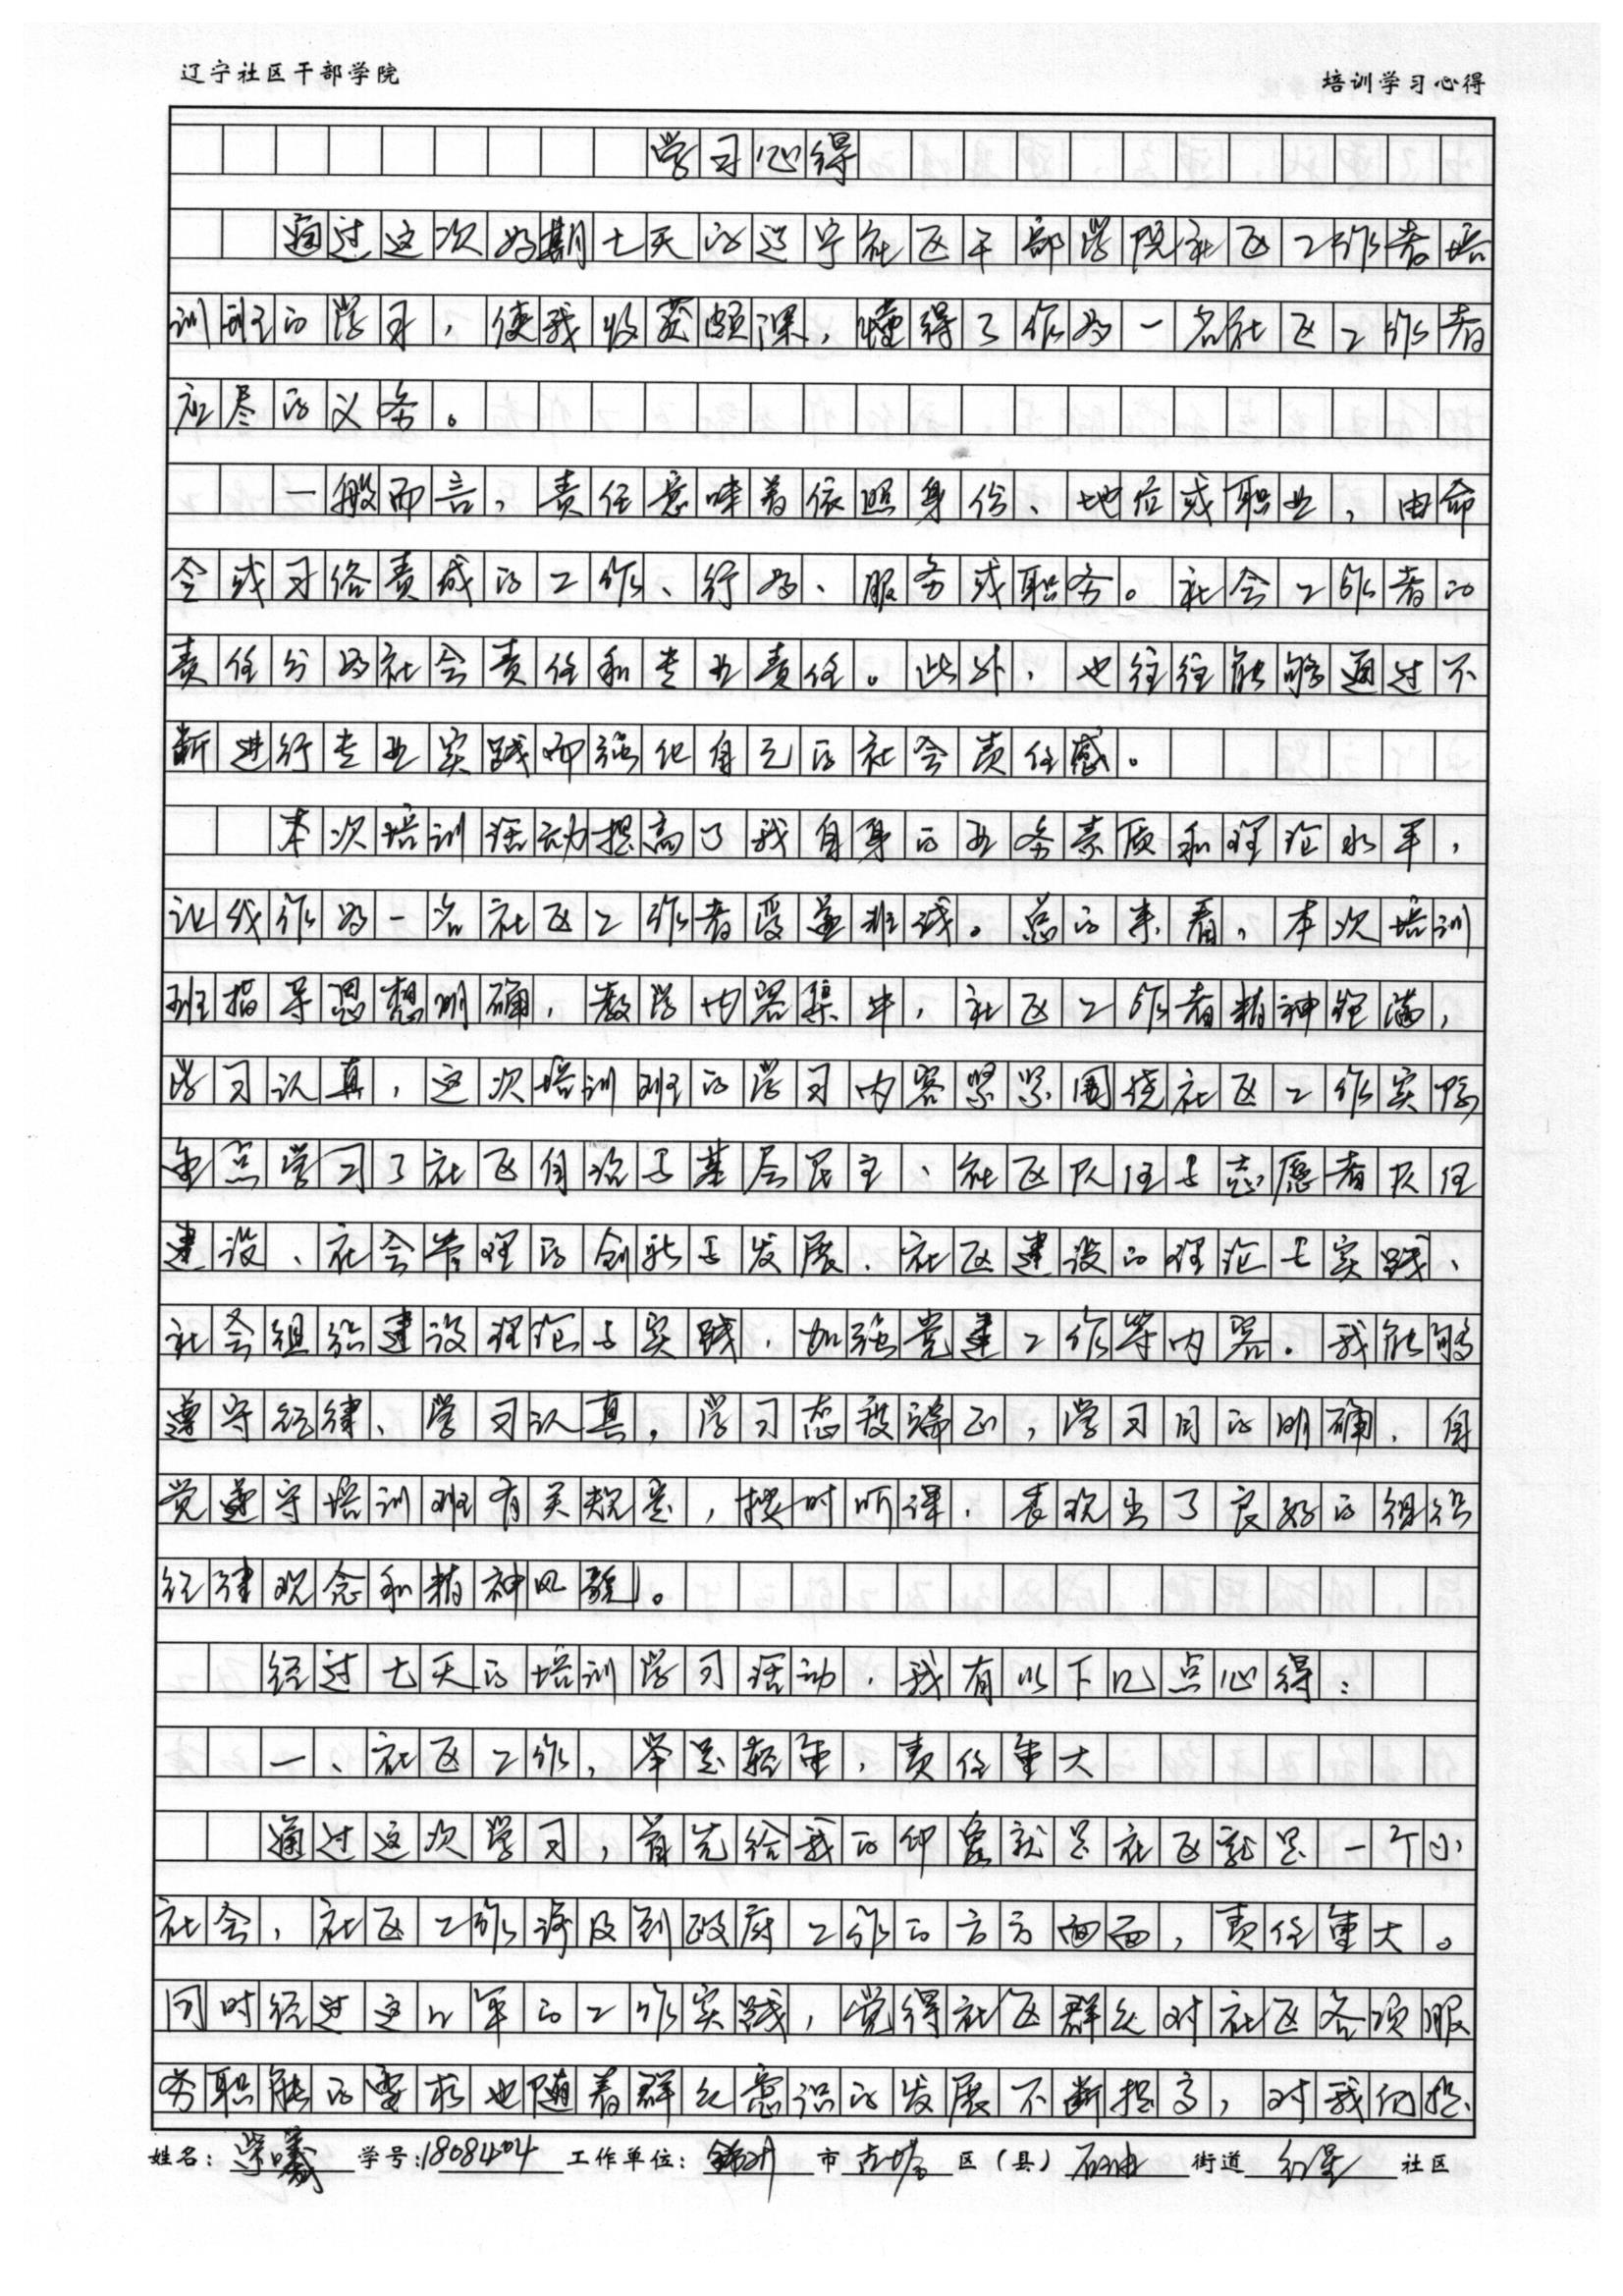 辽宁社区干部学院 培训学习心得
学习心得
通过这次为期七天的辽宁社区干部学院社区工作者培
训班的学习，使我收获颇深，懂得了作为一名社区工作者
应尽的义务。
一般而言，责任意味着依照身份、地位或职业，由命
令或习俗责成的工作、行为、服务或职务。社会工作者的
责任分为社会责任和专业责任。此外，也往往能够通过不
断进行专业实践而强化自己的社会责任感。
本次培训活动提高了我自身的业务素质和理论水平，
让我作为一名社区工作者受益匪浅。总的来看，本次培训
班指导思想明确，教学内容集中，社区工作者精神饱满，
学习认真，这次培训班的学习内容紧紧围绕社区工作实际
重点学习了社区自治与基层民主、社区队伍与志愿者队伍
建设、社会管理的创新与发展、社区建设的理论与实践、
社会组织建设理论与实践，加强党建工作等内容。我能够
遵守纪律、学习认真，学习态度端正，学习目的明确，自
觉遵守培训班有关规定，按时听课，表现出了良好的组织
纪律观念和精神风貌。
经过七天的培训学习活动，我有以下几点心得：
一、社区工作，举足轻重，责任重大
通过这次学习，首先给我的印象就是社区就是一个小
社会，社区工作涉及到政府工作的方方面面，责任重大。
同时经过这几年的工作实践，觉得社区群众对社区各项服
务职能的要求也随着群众意识的发展不断提高，对我们提
姓名： 学号：18084204 工作单位：锦州 市 古塔 区（县） 石油 街道 红星 社区